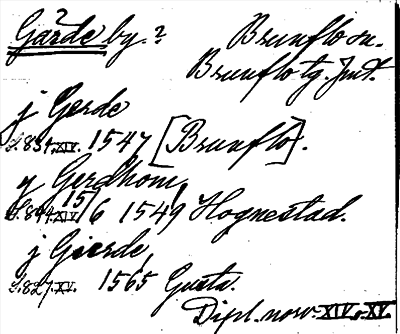 ?
Gärde by.? Brunflo sn.
Brunflo tg. Jmt.
j Gerde
S. 834. XIV. 1547 [Brunflo].
y Gerdhom,
S. 844. XIV 15/6 1549 Hognestad.
j Gierde,
S. 827. XV. 1565 Gusta.
Dipl. norv. XIV o. XV.